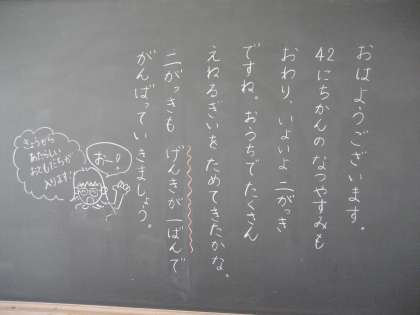 おはようございます。
42にちかんのなつやすみも
おわり、いよいよ二がっき
ですね。おうちでたくさん
えねるぎいをためてきたかな。
二がっきも げんきが一ばんで
がんばっていきましょう。
おー!
きょうから
あたらしい
おともだちが
入ります!